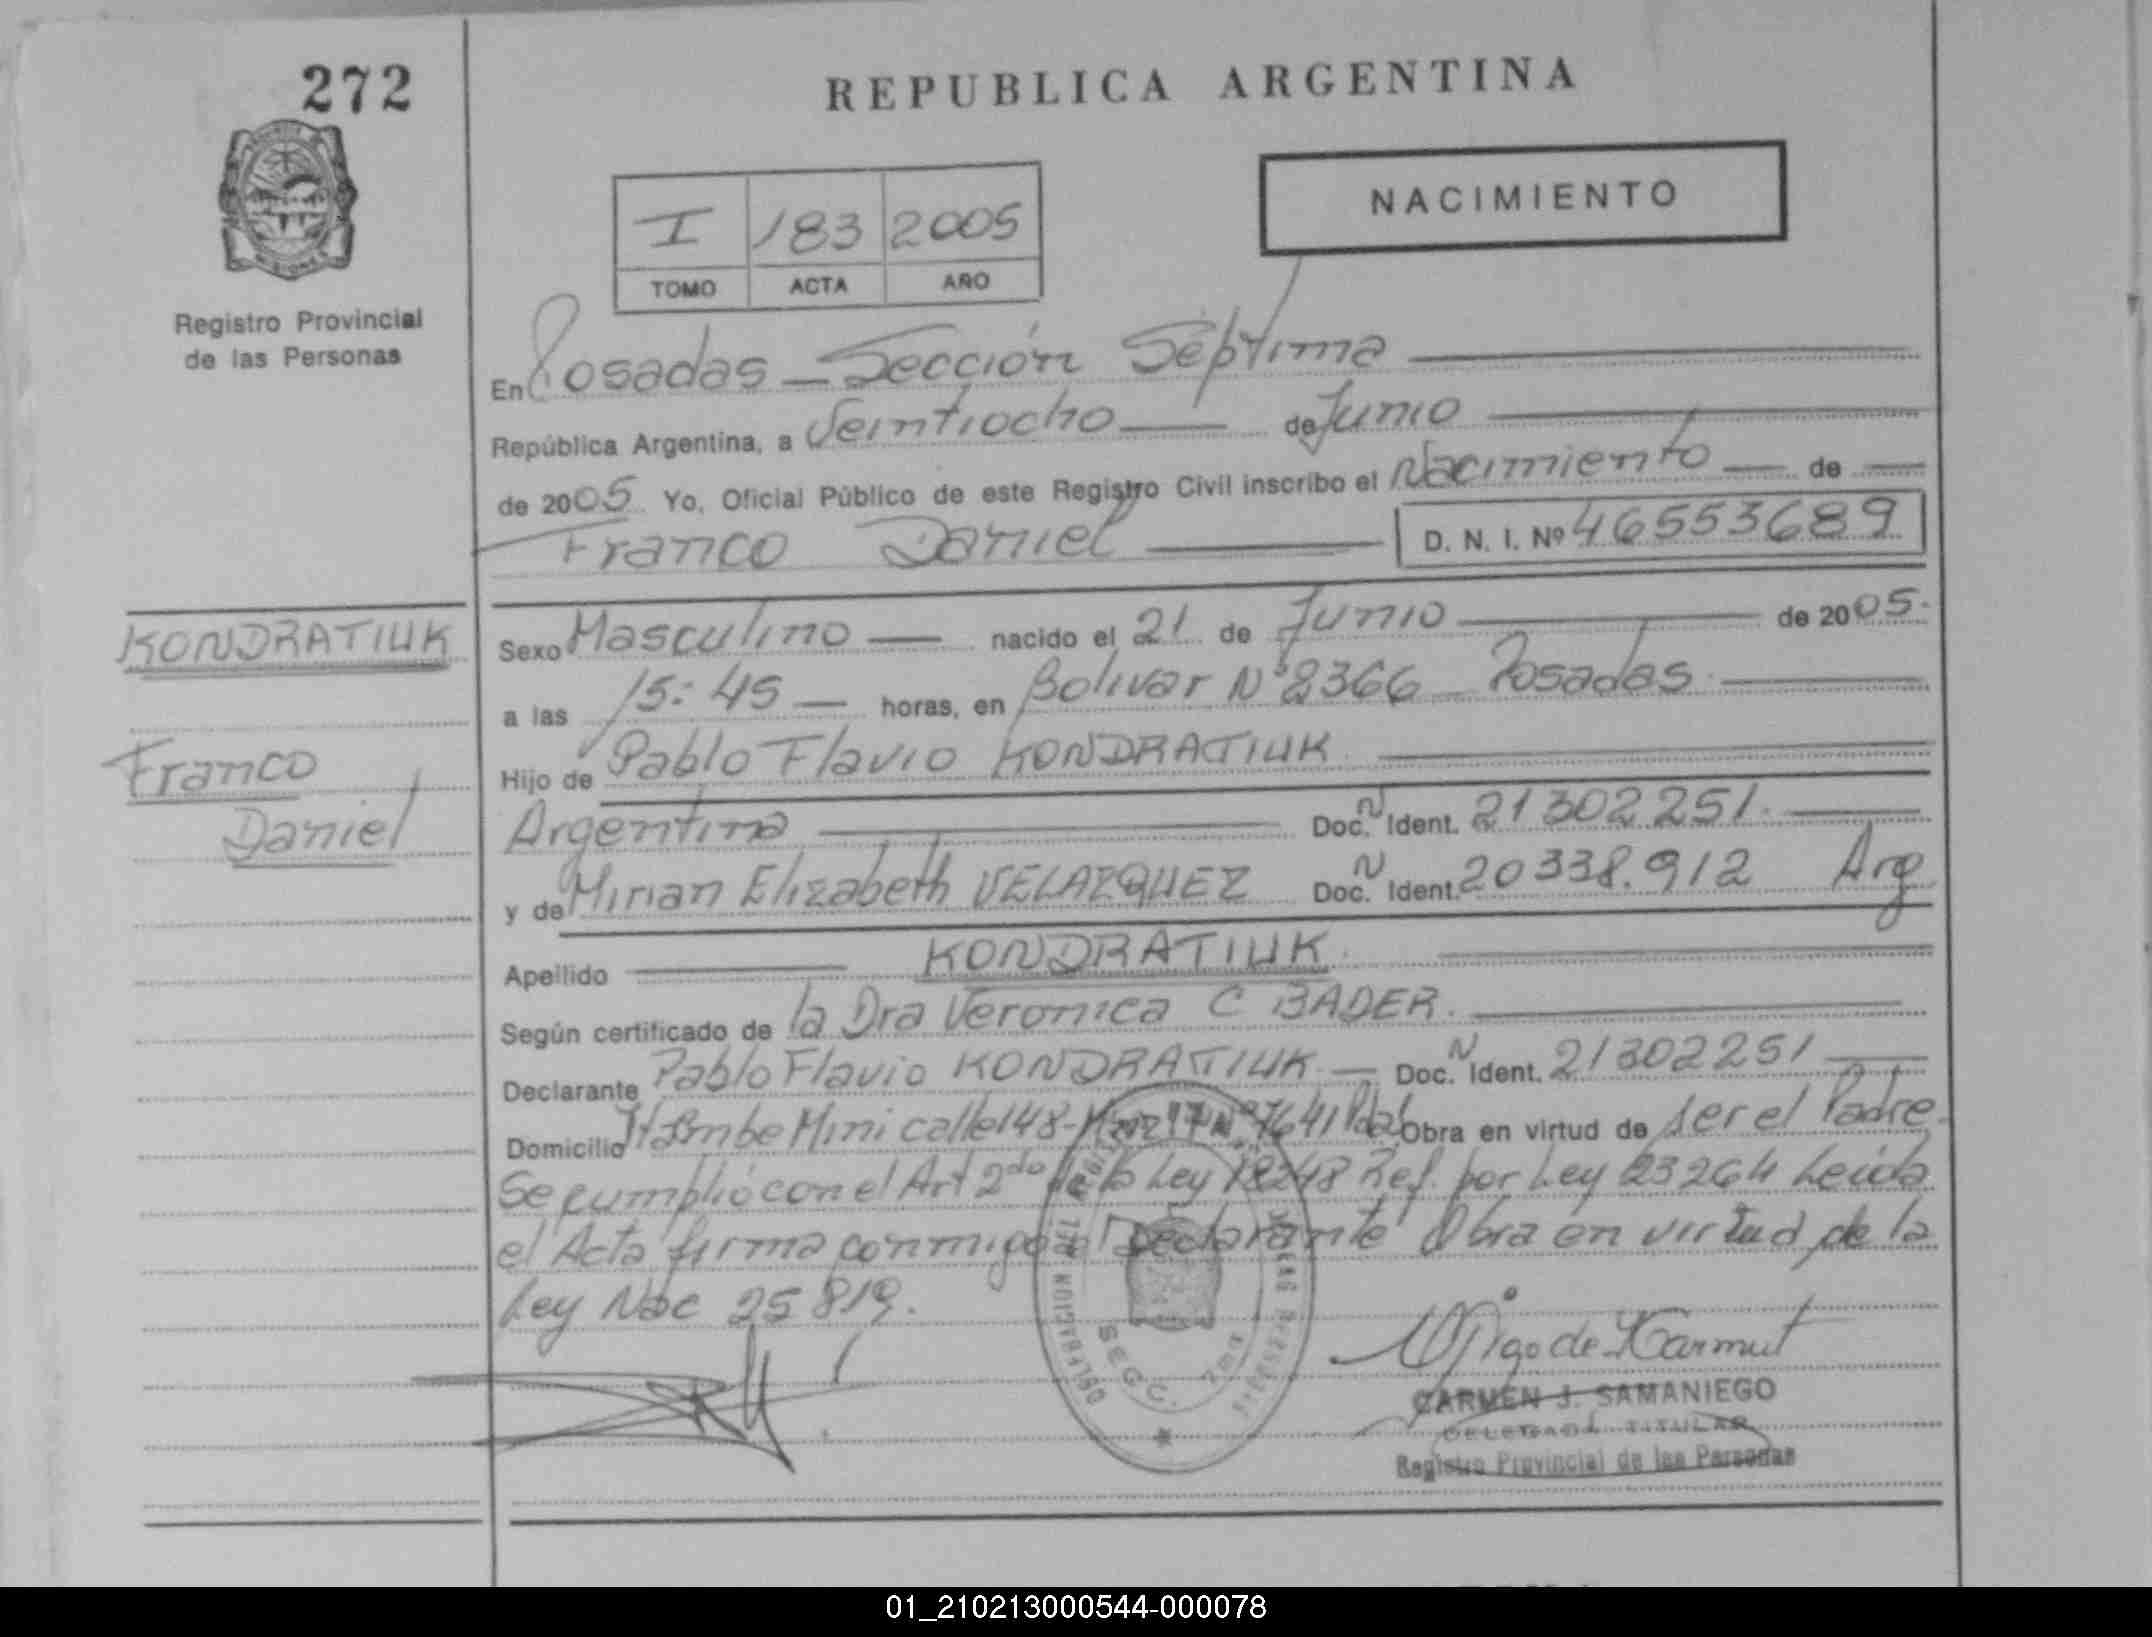 272
REPUBLICA ARGENTINA
NACIMIENTO
I 183 2005
TOMO ACTA AÑO
Registro Provincial
de las Personas
En Posadas - Sección Séptima
República Argentina, a Veintiocho de Junio
de 2005. Yo, Oficial Público de este Registro Civil inscribo el Nacimiento de
Franco Daniel D. N. I. Nº 46553689
KONDRATIUK
Franco
Daniel
Sexo Masculino nacido el 21 de Junio de 2005.
a las 15:45 horas, en Bolivar Nº 2366 Posadas
Hijo de Pablo Flavio KONDRATIUK
Argentina Doc. N Ident. 21302251.
y de Mirian Elizabeth VELAZQUEZ Doc. N Ident. 20338.912 Arg
Apellido KONDRATIUK.
Según certificado de la Dra Veronica C BADER.
Declarante Pablo Flavio KONDRATIUK Doc. N Ident. 21302251
Domicilio Itaembe Mini calle 148- 7641 Obra en virtud de ser el Padre
Se cumplió con el Art 2do de la Ley 18248 Ref. por Ley 23264 Leida
el Acta firma conmigo el Declarante Obra en virtud de la
Ley Nac 25819.
SECC. 7ma
CARMEN J. SAMANIEGO
DELEGADA TITULAR
Registro Provincial de las Personas
01_210213000544-000078